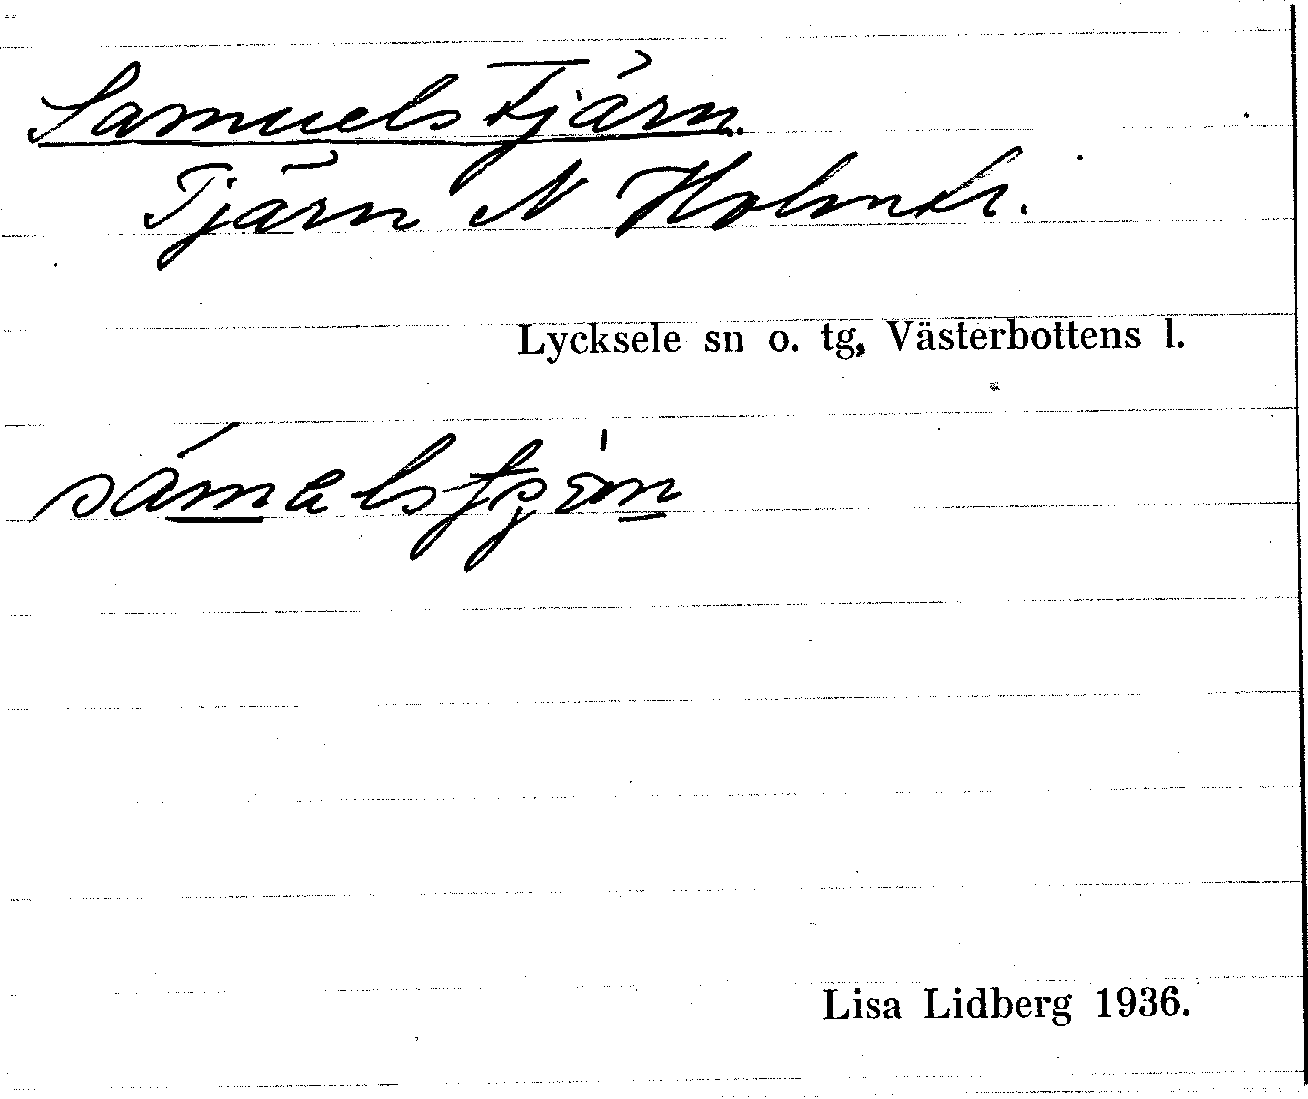 Samuelstjärn
Tjärn N Holmtr.
Lycksele sn o. tg, Västerbottens l.
Lisa Lidberg 1936.